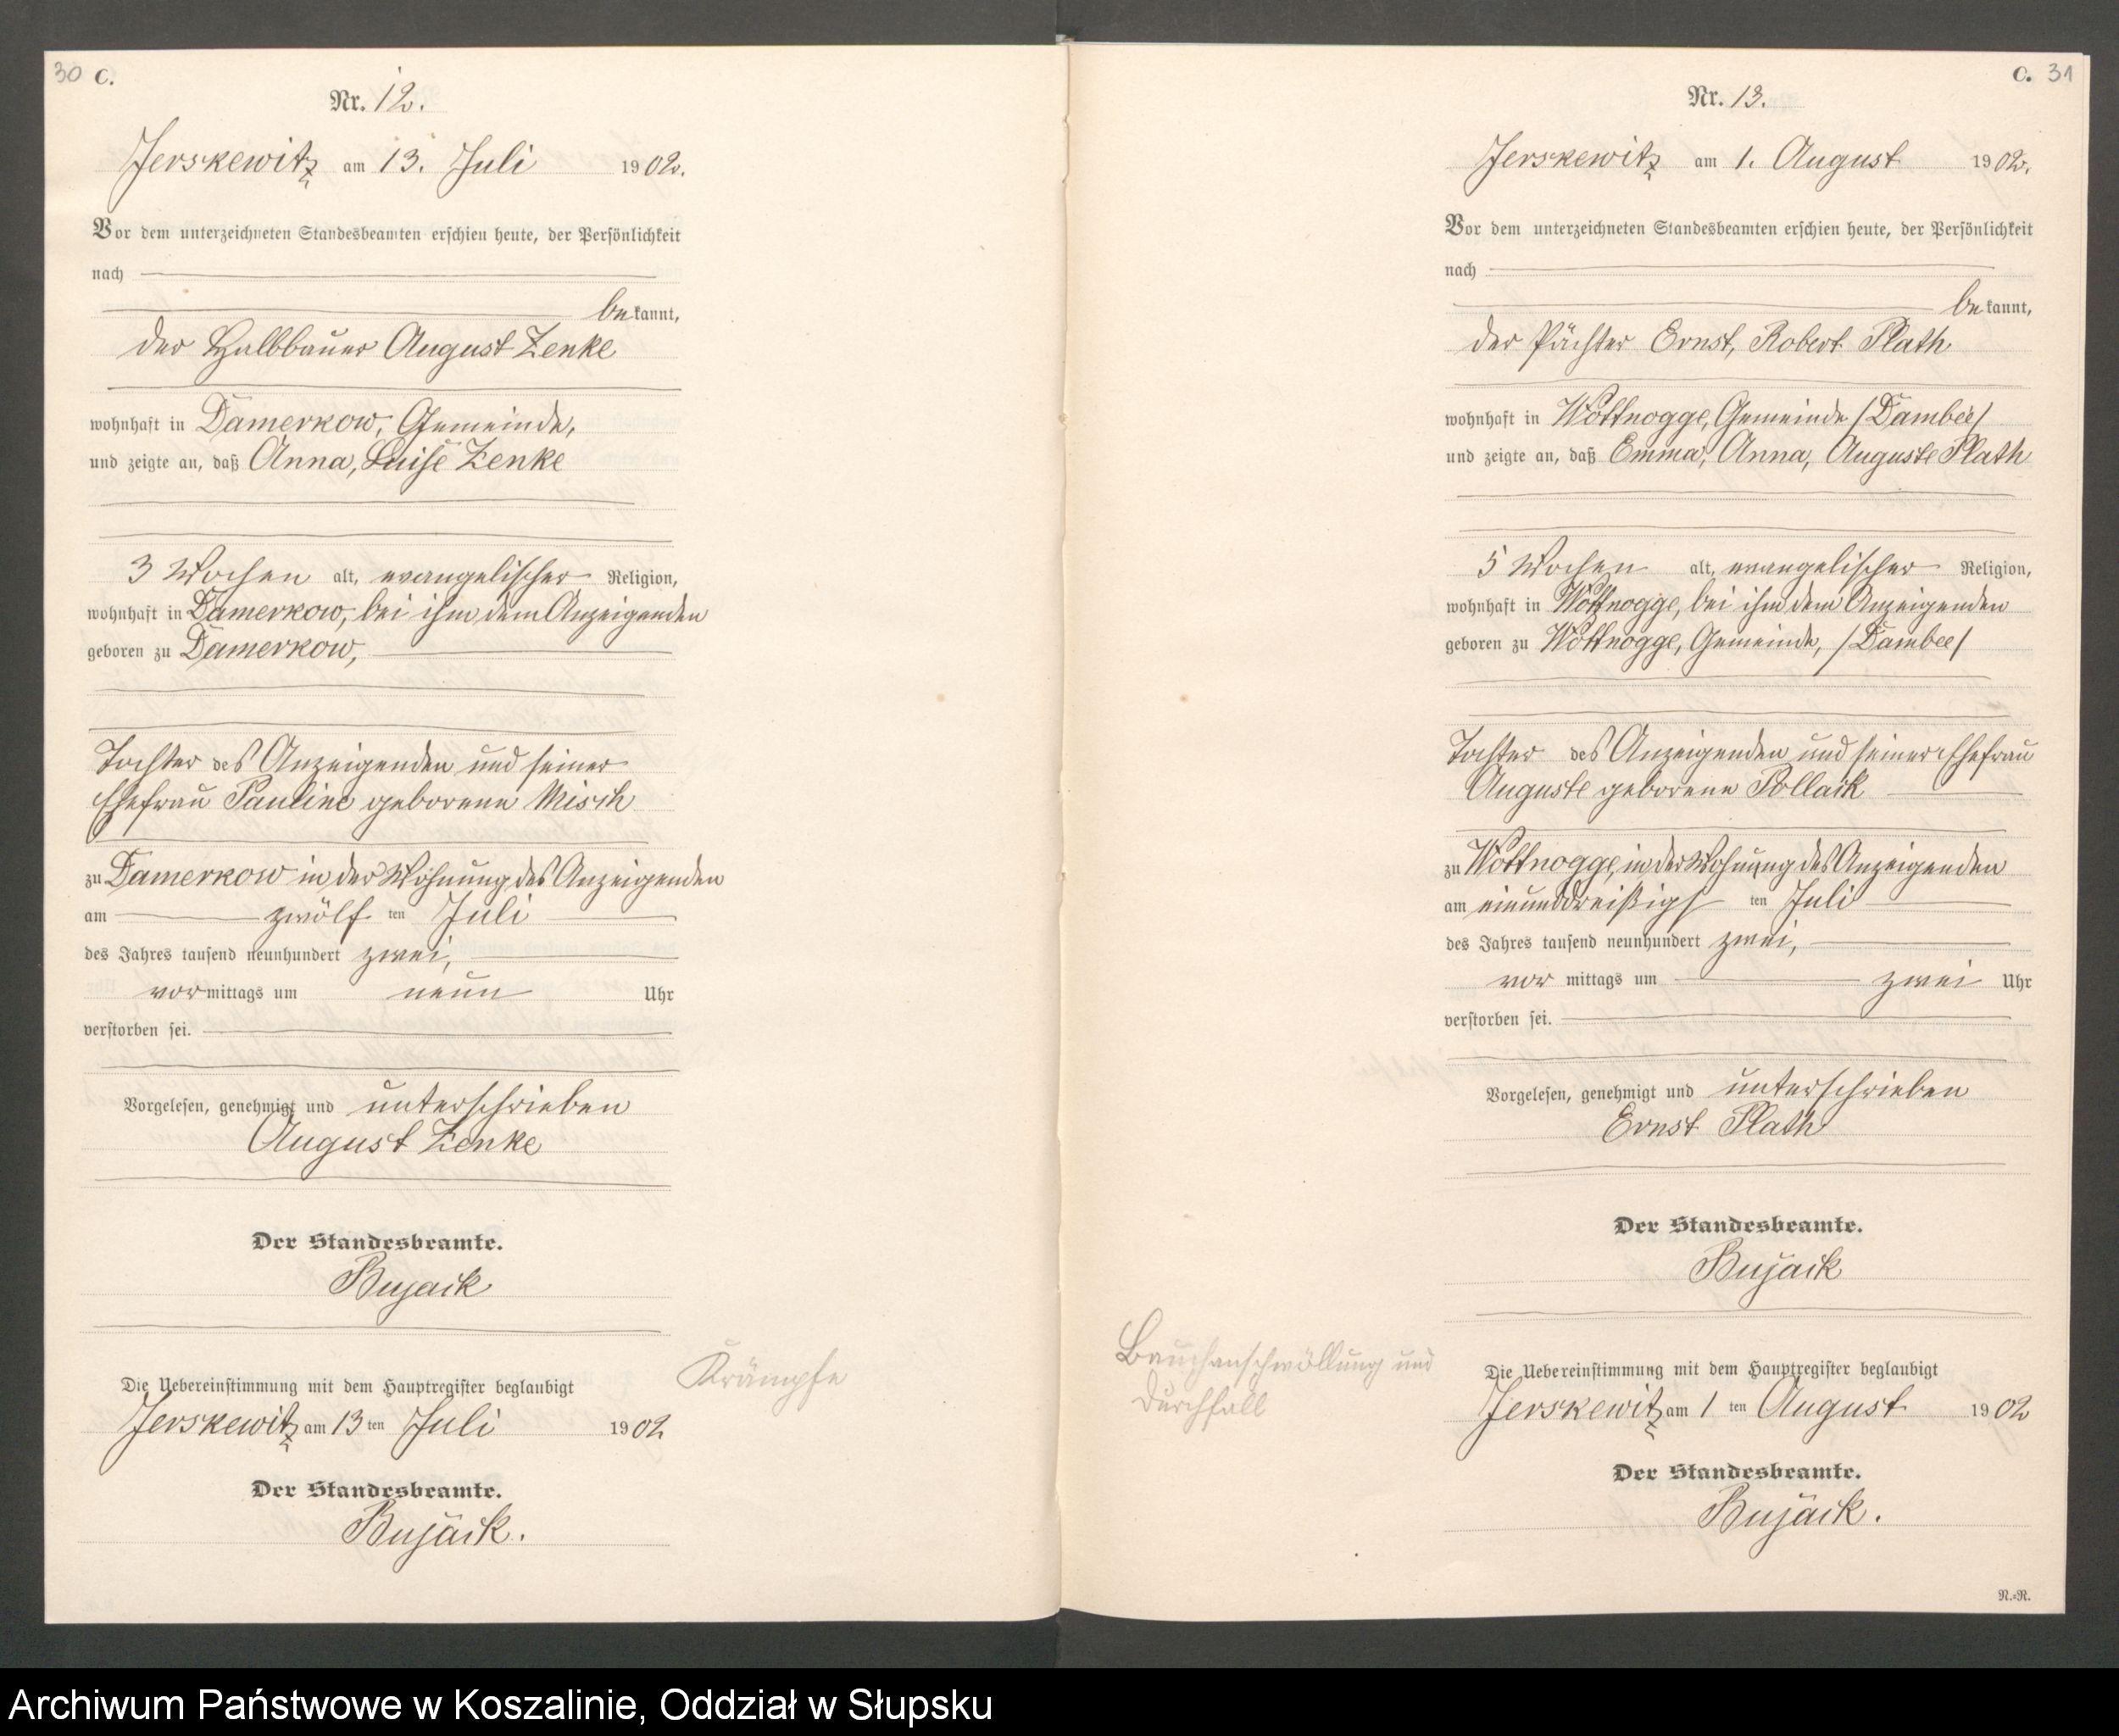 30 C.
Nr. 12.
Jerskewitz am 13. Juli 1902.
Vor dem unterzeichneten Standesbeamten erschien heute, der Persönlichkeit
nach
bekannt,
der Halbbauer August Zenke
wohnhaft in Damerkow, Gemeinde,
und zeigte an, daß Anna, Luise Zenke
3 Wochen alt, evangelischer Religion,
wohnhaft in Damerkow, bei ihm dem Anzeigenden
geboren zu Damerkow,
Tochter des Anzeigenden und seiner
Ehefrau Pauline geborene Misch
zu Damerkow in der Wohnung des Anzeigenden
am zwölf ten Juli
des Jahres tausend neunhundert zwei,
vormittags um neun Uhr
verstorben sei.
Vorgelesen, genehmigt und unterschrieben
August Zenke
Der Standesbeamte.
Bujack
Die Uebereinstimmung mit dem Hauptregister beglaubigt
Jerskewitz am 13 ten Juli 1902
Der Standesbeamte.
Bujack.
Krämpfe
C. 31
Nr. 13.
Jerskewitz am 1. August 1902.
Vor dem unterzeichneten Standesbeamten erschien heute, der Persönlichkeit
nach
bekannt,
der Pächter Ernst, Robert Plath
wohnhaft in Wottnogge, Gemeinde /Dambee/
und zeigte an, daß Emma, Anna, Auguste Plath
5 Wochen alt, evangelischer Religion,
wohnhaft in Wottnogge, bei ihm dem Anzeigenden
geboren zu Wottnogge, Gemeinde, /Dambee/
Tochter des Anzeigenden und seiner Ehefrau
Auguste geborene Pollack
zu Wottnogge, in der Wohnung des Anzeigenden
am einunddreißigs ten Juli
des Jahres tausend neunhundert zwei,
vor mittags um zwei Uhr
verstorben sei.
Vorgelesen, genehmigt und unterschrieben
Ernst Plath
Der Standesbeamte.
Bujack
Bauchanschwöllung und
Durchfall
Die Uebereinstimmung mit dem Hauptregister beglaubigt
Jerskewitz am 1 ten August 1902
Der Standesbeamte.
Bujack.
N.=N.
Archiwum Państwowe w Koszalinie, Oddział w Słupsku